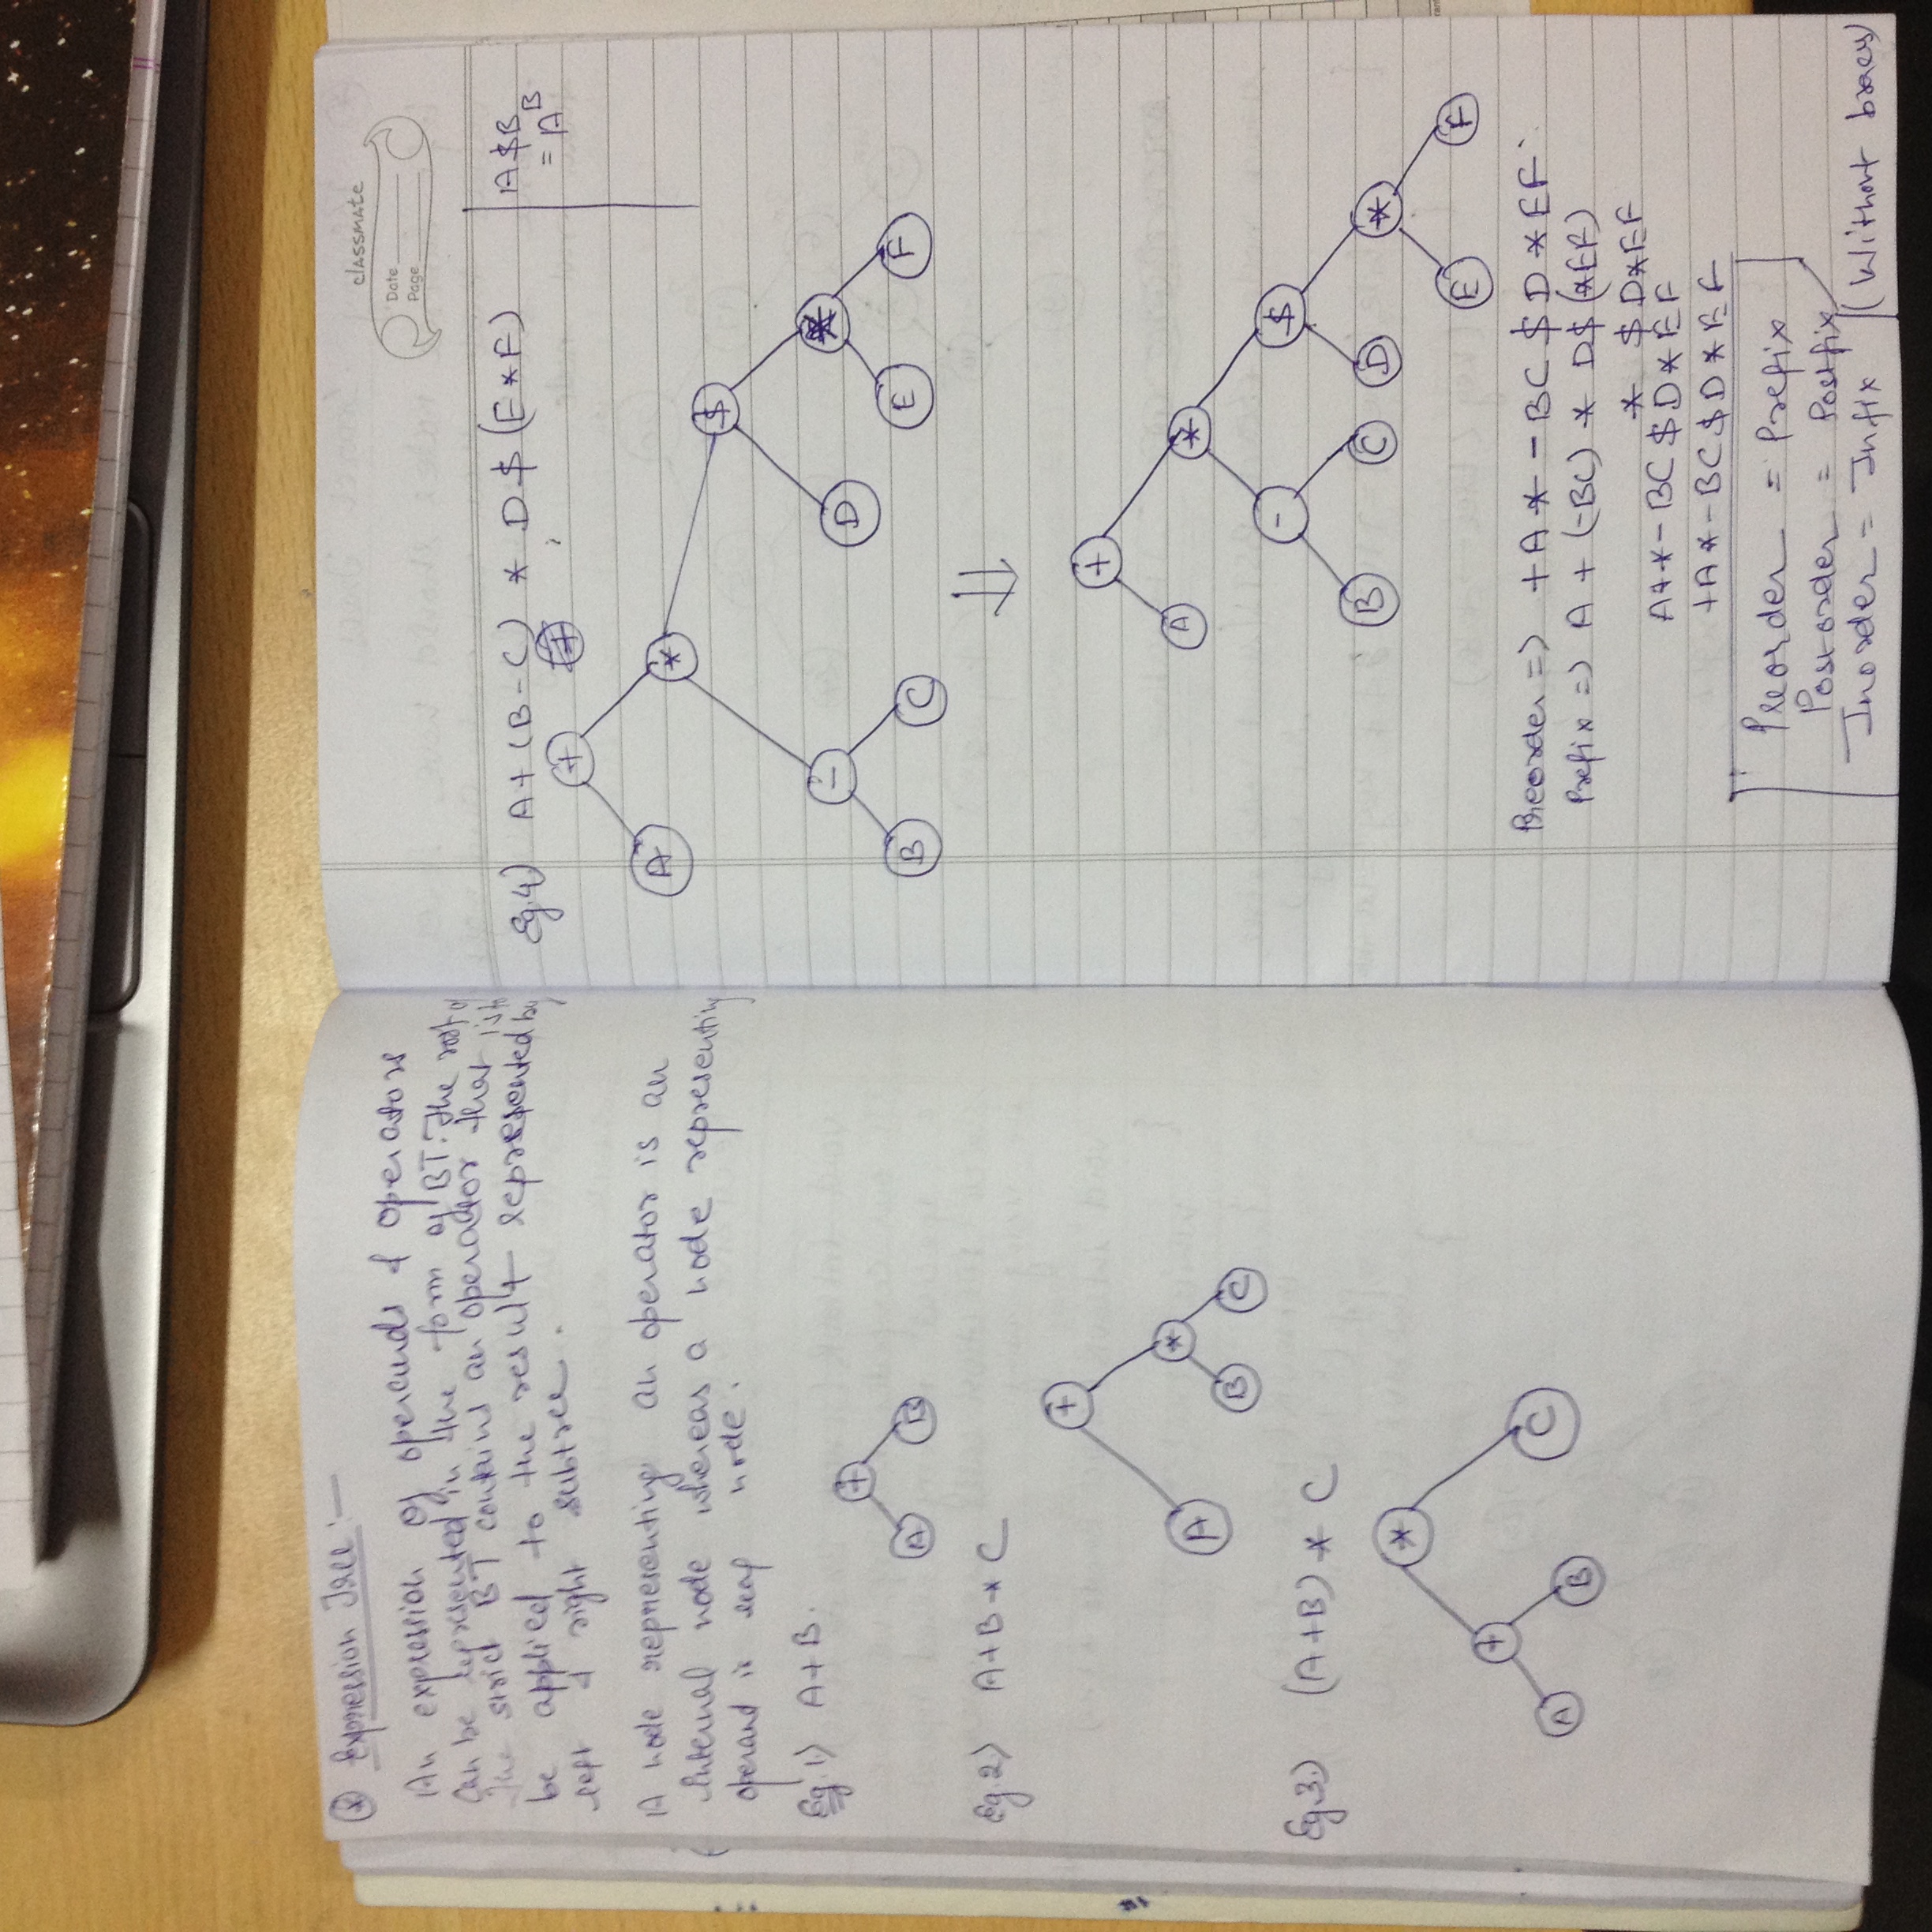 * Expression Tree :—
An expression of operands & operators
can be represented in the form of BT. The root of
the strict BT contains an operator that is to
be applied to the result represented by
left & right subtree.
A node representing an operator is an
internal node whereas a node representing
operand is leaf node.
Eg.1) A+B.
+
A B
Eg.2) A+B*C
+
A *
B C
Eg.3) (A+B)*C
*
+ C
A B
classmate
Date
Page
Eg.4) A+(B-C) * D$(E*F)
A$B
= A^B
+
A *
- $
B C D *
E F
⇓
+
A *
- $
B C D *
E F
Preorder => +A*-BC$D*EF.
Prefix => A + (-BC) * D$(*EF)
* $D*EF
A+*-BC$D*EF
+A*-BC$D*EF
Preorder = Prefix
Postorder = Postfix
Inorder = Infix (Without braces)